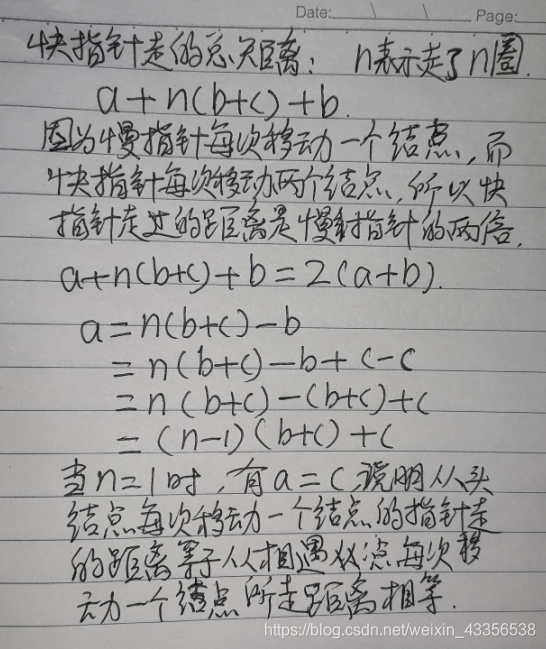 Date: \ \ Page:
快指针走的总矩离: n表示走了n圈.
a+n(b+c)+b.
因为慢指针每次移动一个结点,而
快指针每次移动两个结点,所以快
指针走过的距离是慢指针的两倍.
a+n(b+c)+b=2(a+b).
a=n(b+c)-b
=n(b+c)-b+c-c
=n(b+c)-(b+c)+c
=(n-1)(b+c)+c
当n=1时,有a=c,说明从头
结点每次移动一个结点的指针走
的距离等于从相遇点每次移
动一个结点所走距离相等.
https://blog.csdn.net/weixin_43356538